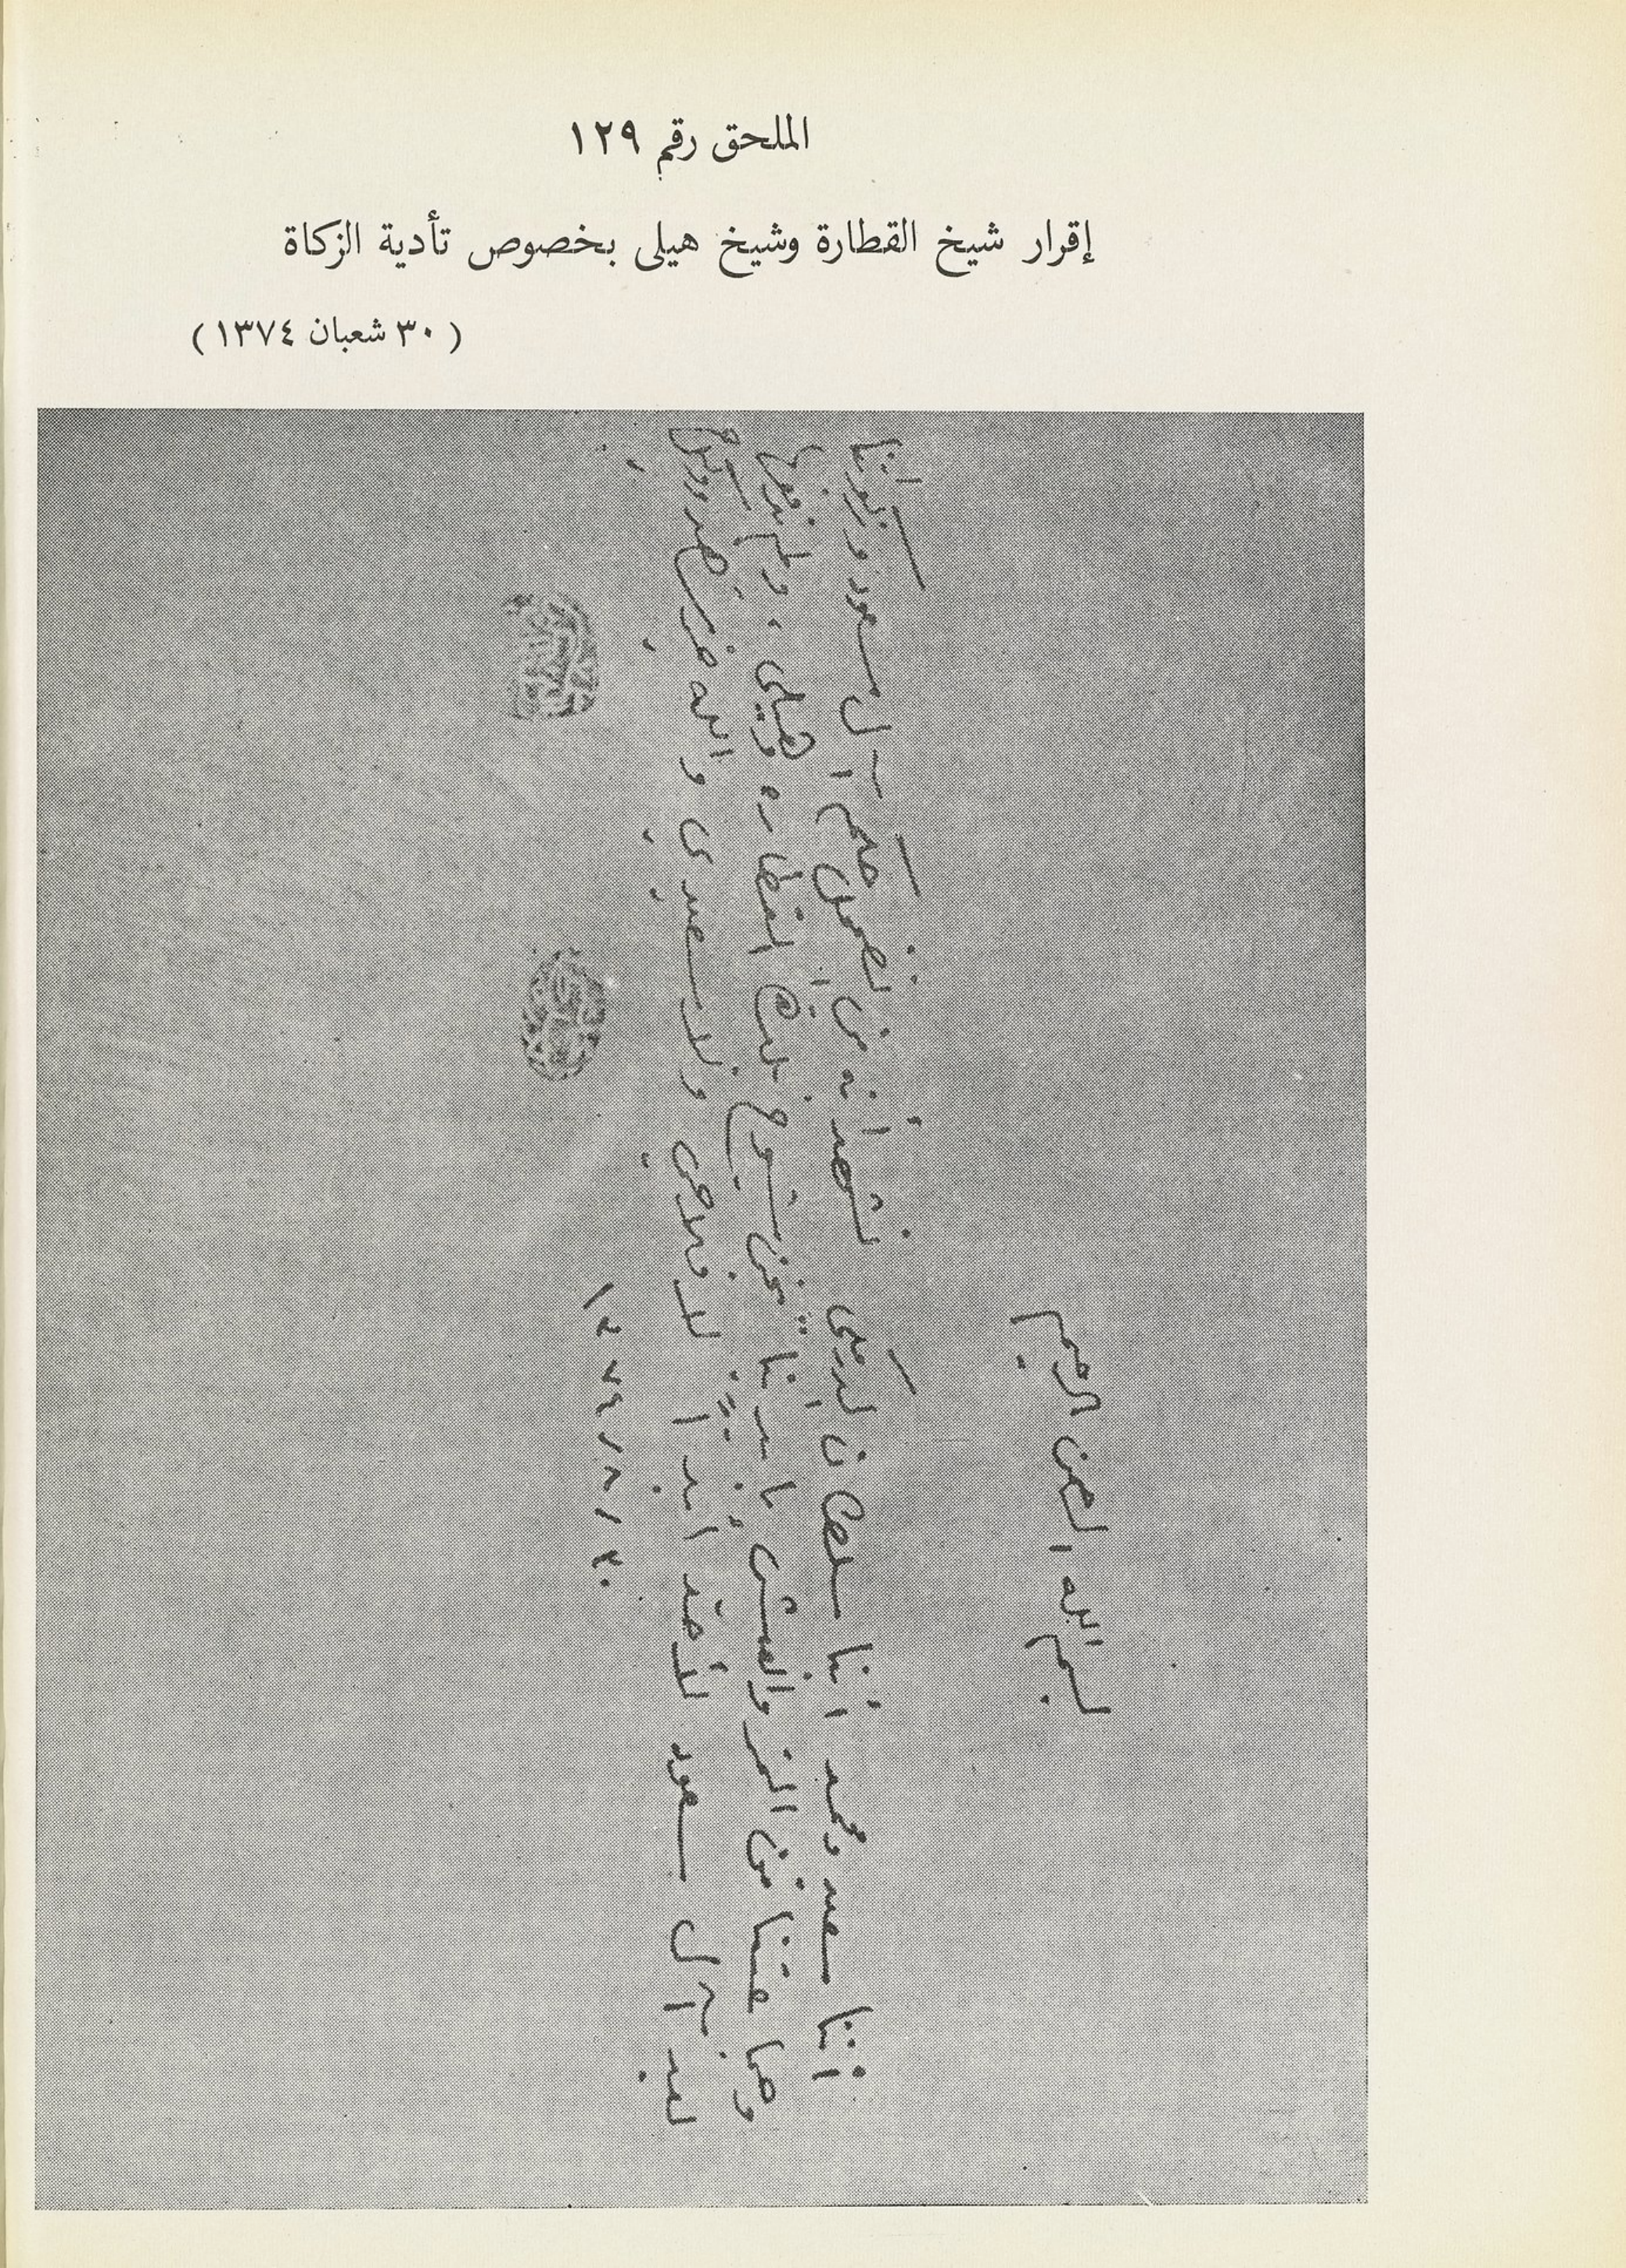 الملحق رقم ١٢٩
إقرار شيخ القطارة وشيخ هيلى بخصوص تأدية الزكاة
( ٣٠ شعبان ١٣٧٤ )
بسم الله الرحمن الرحيم
أننا سعيد ومحمد أبنا سلطان الدرمكي نشهد أنه من حكم آل سعود وزكواتنا
من التمر والعيش نحن شيوخ القطاره وهيلي ، ولم ندفع
لغير آل سعود لأحد أبداً أبداً لا فلاحي ولا سعيدي والله
٣٠ / ٨ / ١٣٧٤